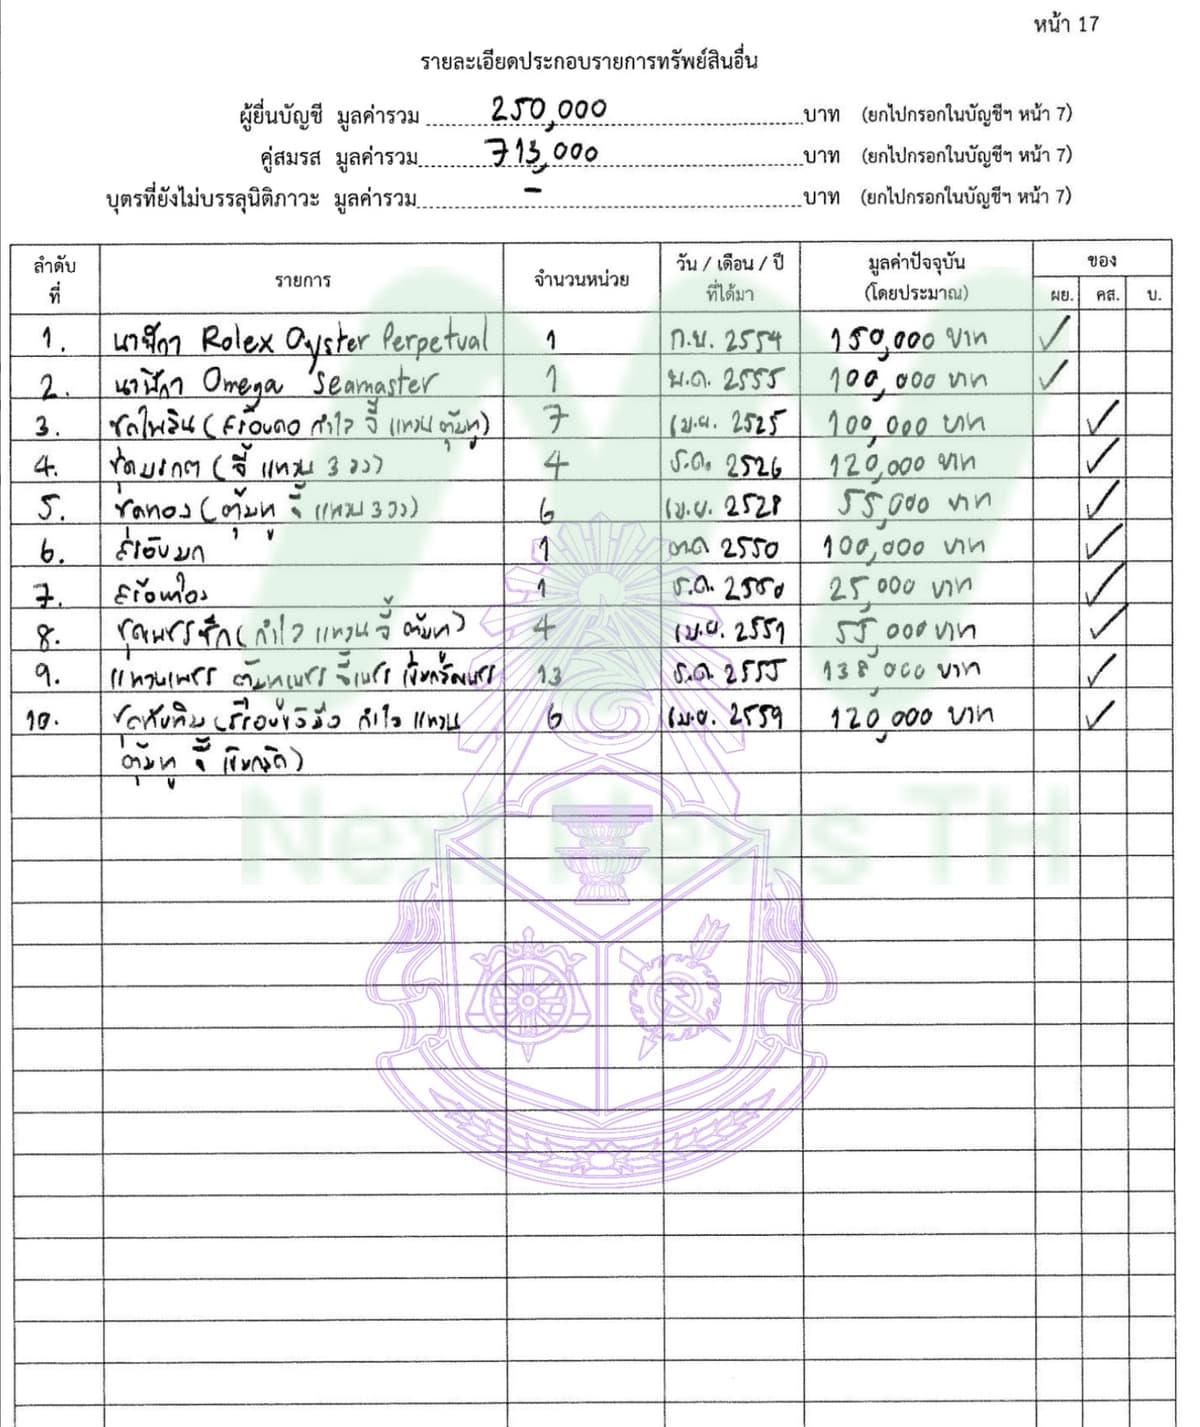 หน้า 17
รายละเอียดประกอบรายการทรัพย์สินอื่น
ผู้ยื่นบัญชี มูลค่ารวม 250,000 บาท (ยกไปกรอกในบัญชีฯ หน้า 7)
คู่สมรส มูลค่ารวม 713,000 บาท (ยกไปกรอกในบัญชีฯ หน้า 7)
บุตรที่ยังไม่บรรลุนิติภาวะ มูลค่ารวม - บาท (ยกไปกรอกในบัญชีฯ หน้า 7)
ลำดับ ที่ รายการ จำนวนหน่วย วัน / เดือน / ปี ที่ได้มา มูลค่าปัจจุบัน (โดยประมาณ) ของ
ผย. คส. บ.
1. นาฬิกา Rolex Oyster Perpetual 1 ก.ย. 2554 150,000 บาท ✓
2. นาฬิกา Omega Seamaster 1 พ.ค. 2555 100,000 บาท ✓
3. ชุดไพลิน (สร้อยคอ กำไล จี้ แหวน ตุ้มหู) 7 เม.ย. 2525 100,000 บาท ✓
4. ชุดมรกต (จี้ แหวน 3 วง) 4 ธ.ค. 2526 120,000 บาท ✓
5. ชุดทอง (ตุ้มหู จี้ แหวน 3 วง) 6 เม.ย. 2528 55,000 บาท ✓
6. สร้อยมุก 1 2550 100,000 บาท ✓
7. สร้อยทอง 1 ธ.ค. 2550 25,000 บาท ✓
8. ชุดเพชรซีก (กำไล แหวน จี้ ตุ้มหู) 4 เม.ย. 2551 55,000 บาท ✓
9. แหวนเพชร ตุ้มหูเพชร จี้เพชร เข็มกลัดเพชร 13 ธ.ค. 2555 138,000 บาท ✓
10. ชุดทับทิม (สร้อยข้อมือ กำไล แหวน 6 เม.ย. 2559 120,000 บาท ✓
ตุ้มหู จี้ เข็มกลัด)
Next News TH